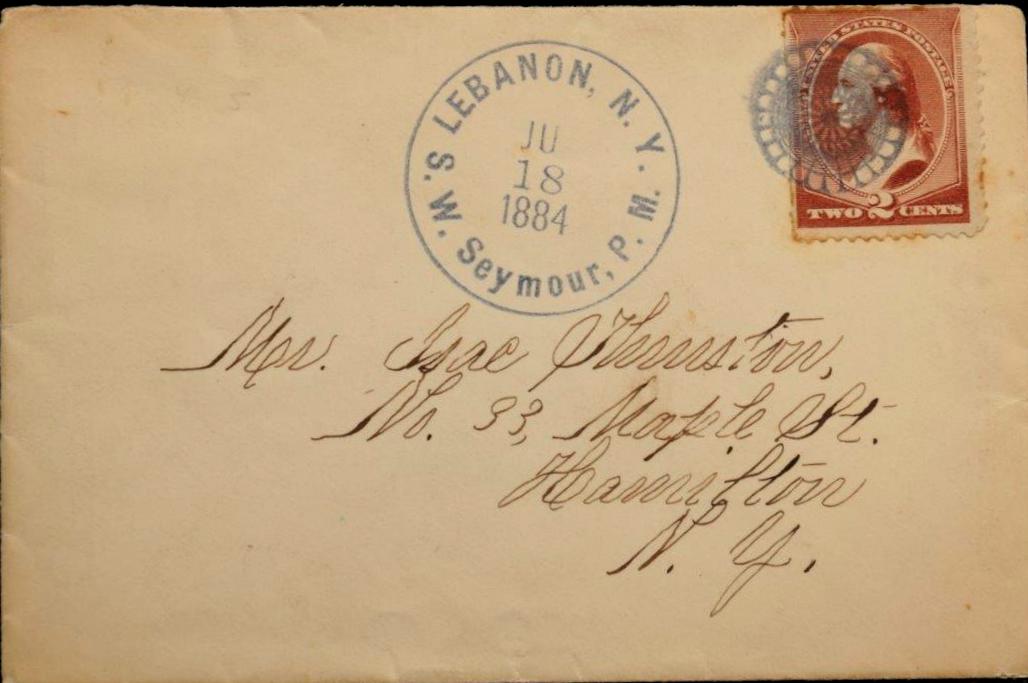 LEBANON, N. Y.
JU
18
1884
W. S. Seymour, P. M.
UNITED STATES POSTAGE
TWO 2 CENTS
Mr. Isac Thurston,
No. 33, Maple St.
Hamilton
N. Y.